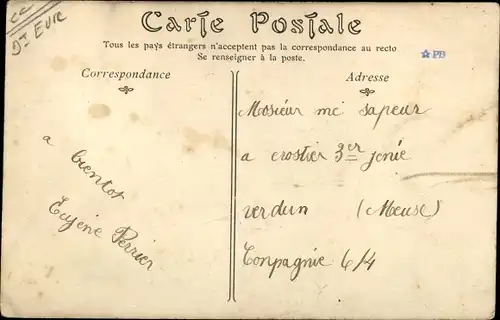 CC
Dt EUR
Carte Postale
Tous les pays étrangers n'acceptent pas la correspondance au recto
Se renseigner à la poste.
PB
Correspondance
a bientot
Eugène Perrier
Adresse
Mosiéur mc sapeur
a crostier 3er jenie
verdun (Meuse)
Conpagnie 6/4